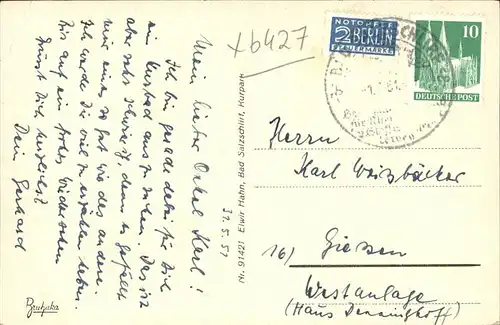 Mein lieber Onkel Karl!
Ich bin gerade dabei für Dich
ein Kurbad aus zu suchen. Das ist
aber sehr schwierig, denn es gefällt
mir eines so gut wie das andere.
Ich werde Dir viel zu erzählen haben.
Bis auf ein frohes Wiedersehen
grüsst Dich herzlichst
Dein Gerhard
31.5.51
Nr. 91421 Elwir Hahn, Bad Salzschlirf, Kurpark
+6427
NOTOPFER
2 BERLIN
STEUERMARKE
10
DEUTSCHE POST
Herrn
Karl Weißbäcker
16) Giessen
Westanlage
(Haus Denninghoff)